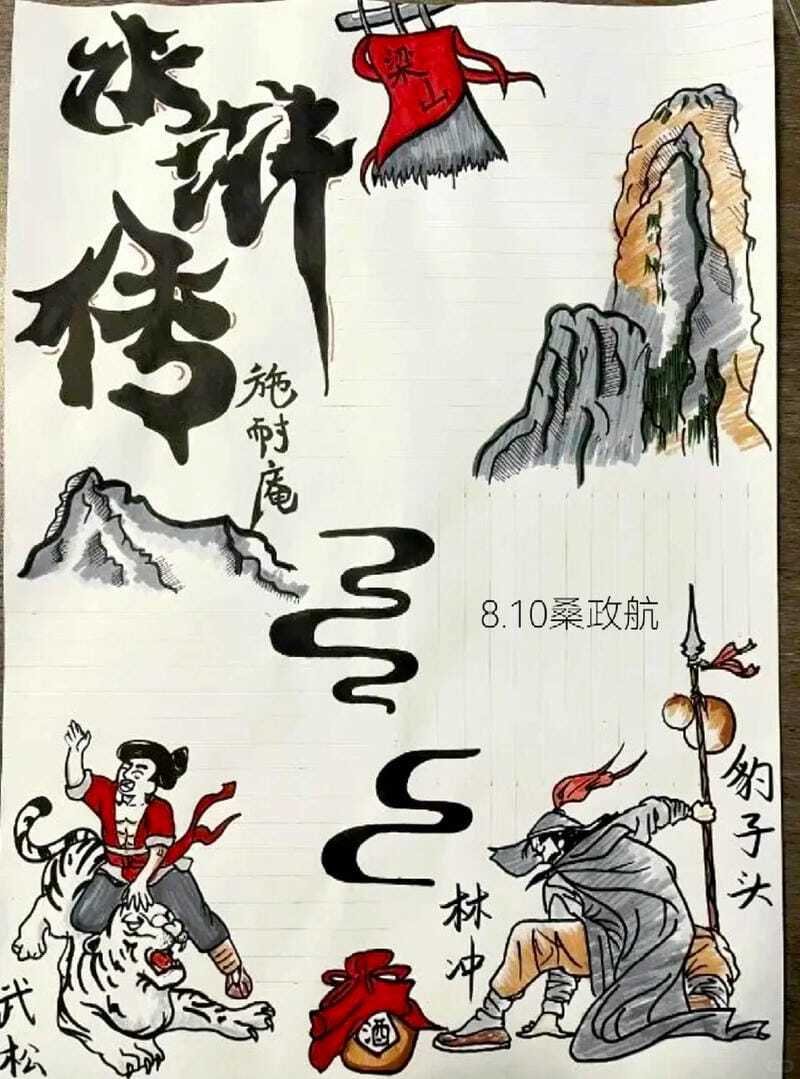 水浒传
施耐庵
梁山
8.10桑政航
武松
酒
林冲
豹子头